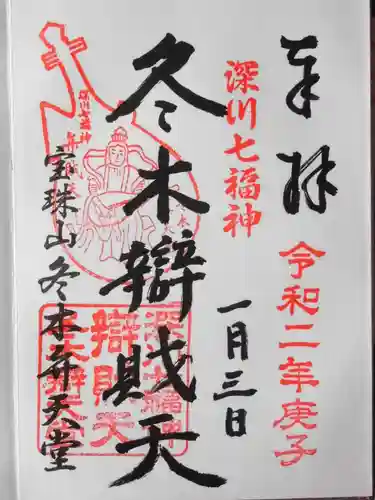 奉拝
令和二年庚子
深川七福神
一月三日
冬木辯財天
深川七福神
宝珠山冬木弁天堂
深川七福神
辯財天
冬木辯天堂